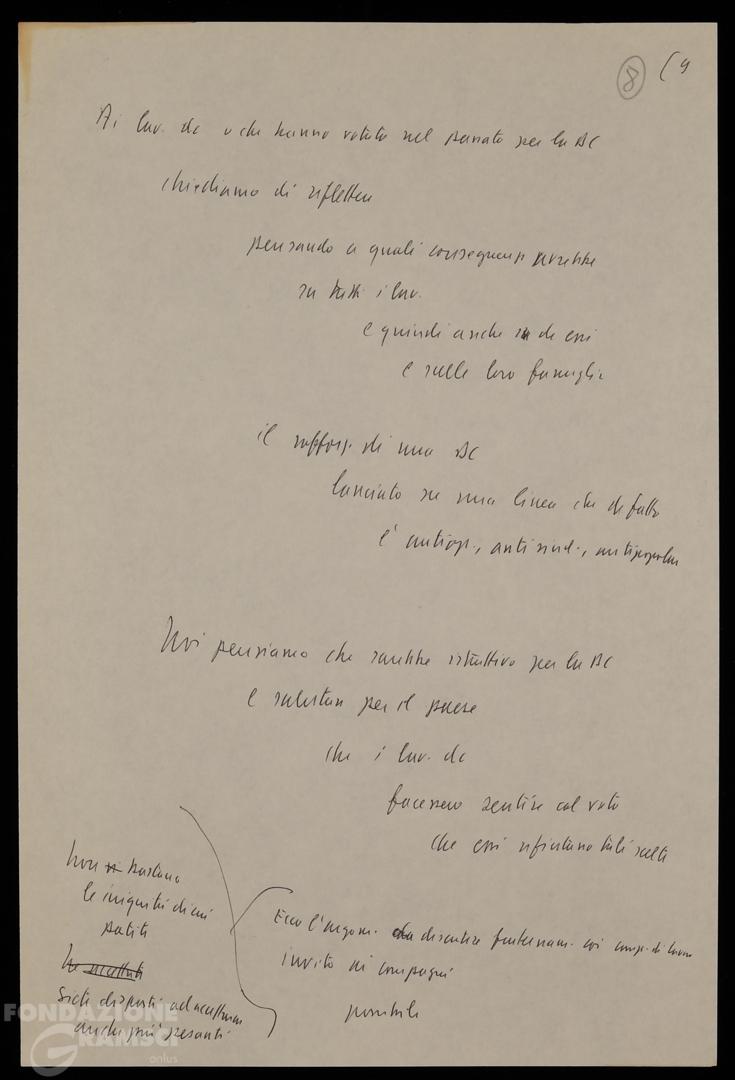 8 (9
Ai lav. dc o che hanno votato nel passato per la DC
chiediamo di riflettere
pensando a quali conseguenze avrebbe
su tutti i lav.
e quindi anche su di essi
e sulle loro famiglie
il rafforz. di una DC
lanciata su una linea che di fatto
è antiop., antisind., antipopolare
Noi pensiamo che sarebbe istruttivo per la DC
e salutare per il paese
che i lav. dc
facessero sentire col voto
che essi rifiutano tali scelte
Non vi bastano
le iniquità di cui
patite
Siete disposti ad accettarne
anche più pesanti
Ecco l'argom. da discutere fraternam. coi comp. di lavoro
invito ai compagni
possibile
FONDAZIONE
GRAMSCI
onlus